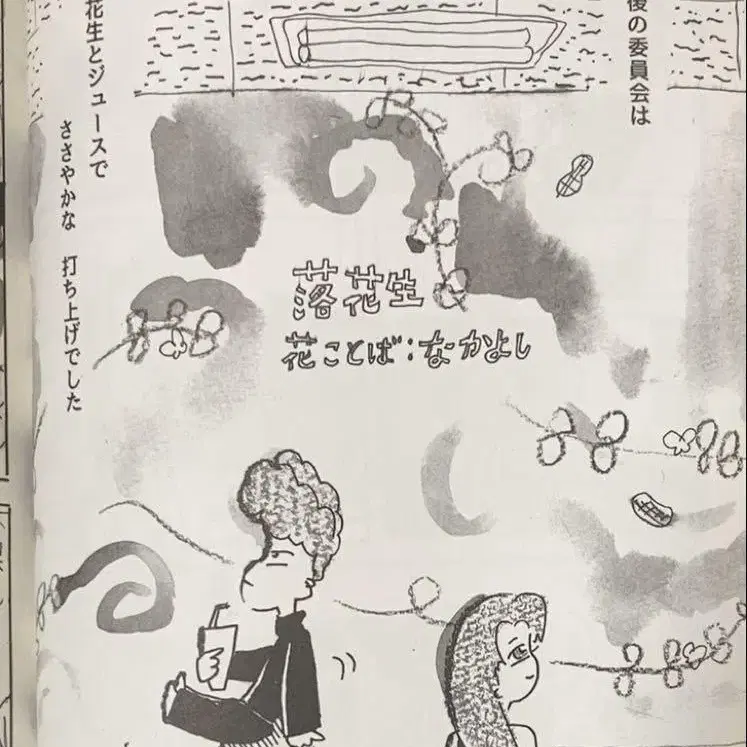 後の委員会は
花生とジュースで
ささやかな 打ち上げでした
落花生
花ことば:なかよし